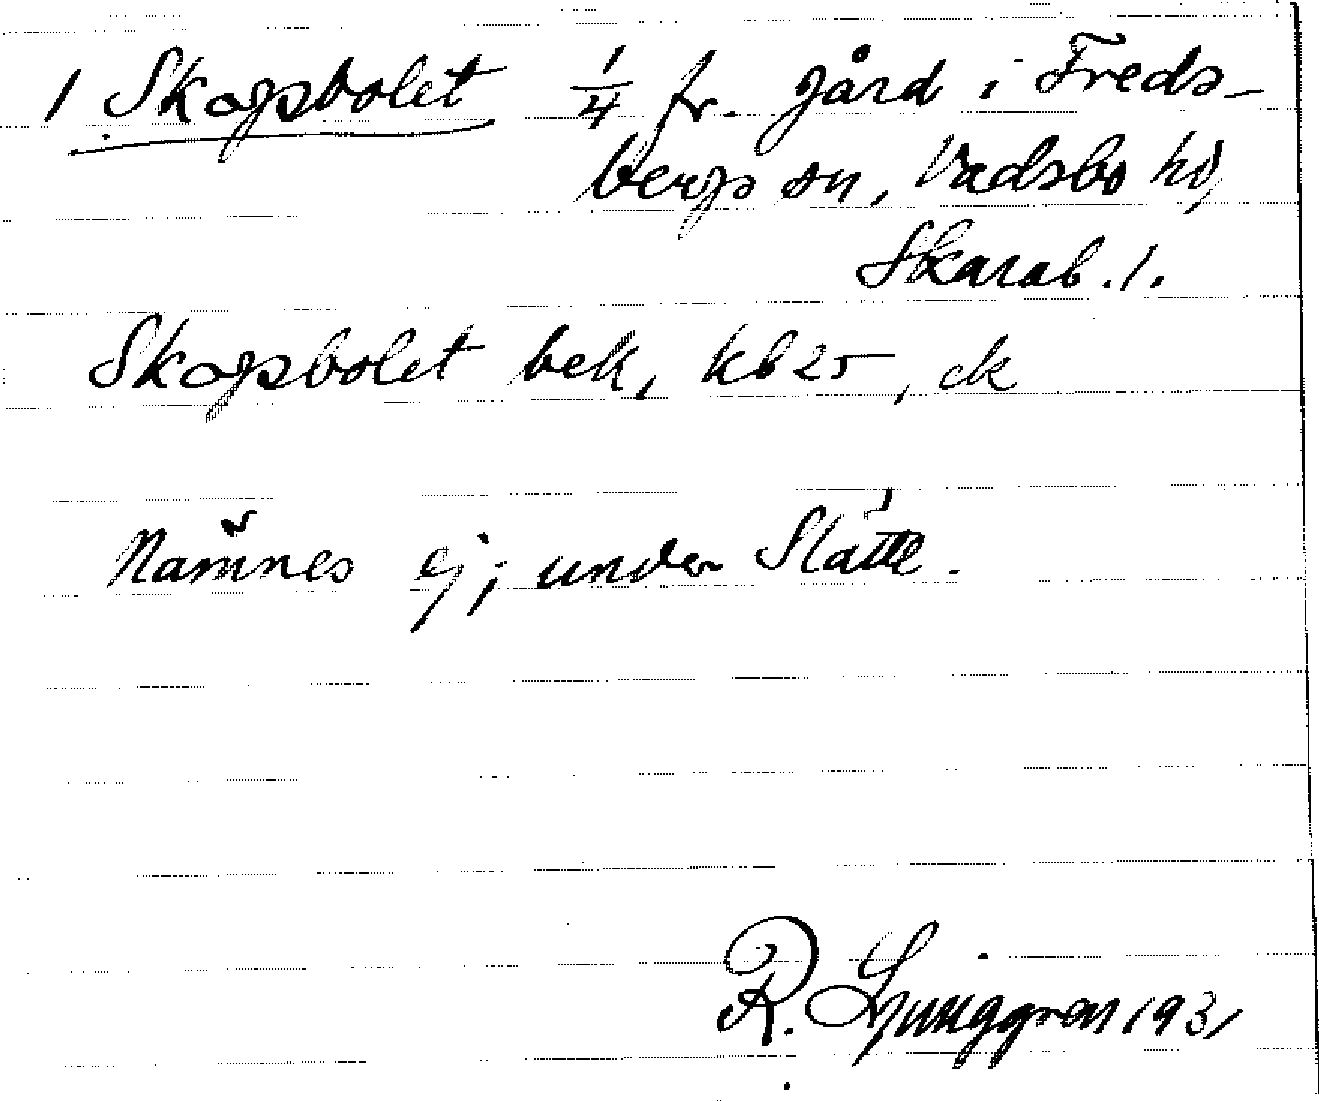 1 Skogsbolet 1/4 fr. gård i Freds-
bergs sn, Vadsbo hd,
Skarab. l.
Skogsbolet bek, kb 25, ek
Nämnes ej; under Slätte.
R. Ljunggren 1931